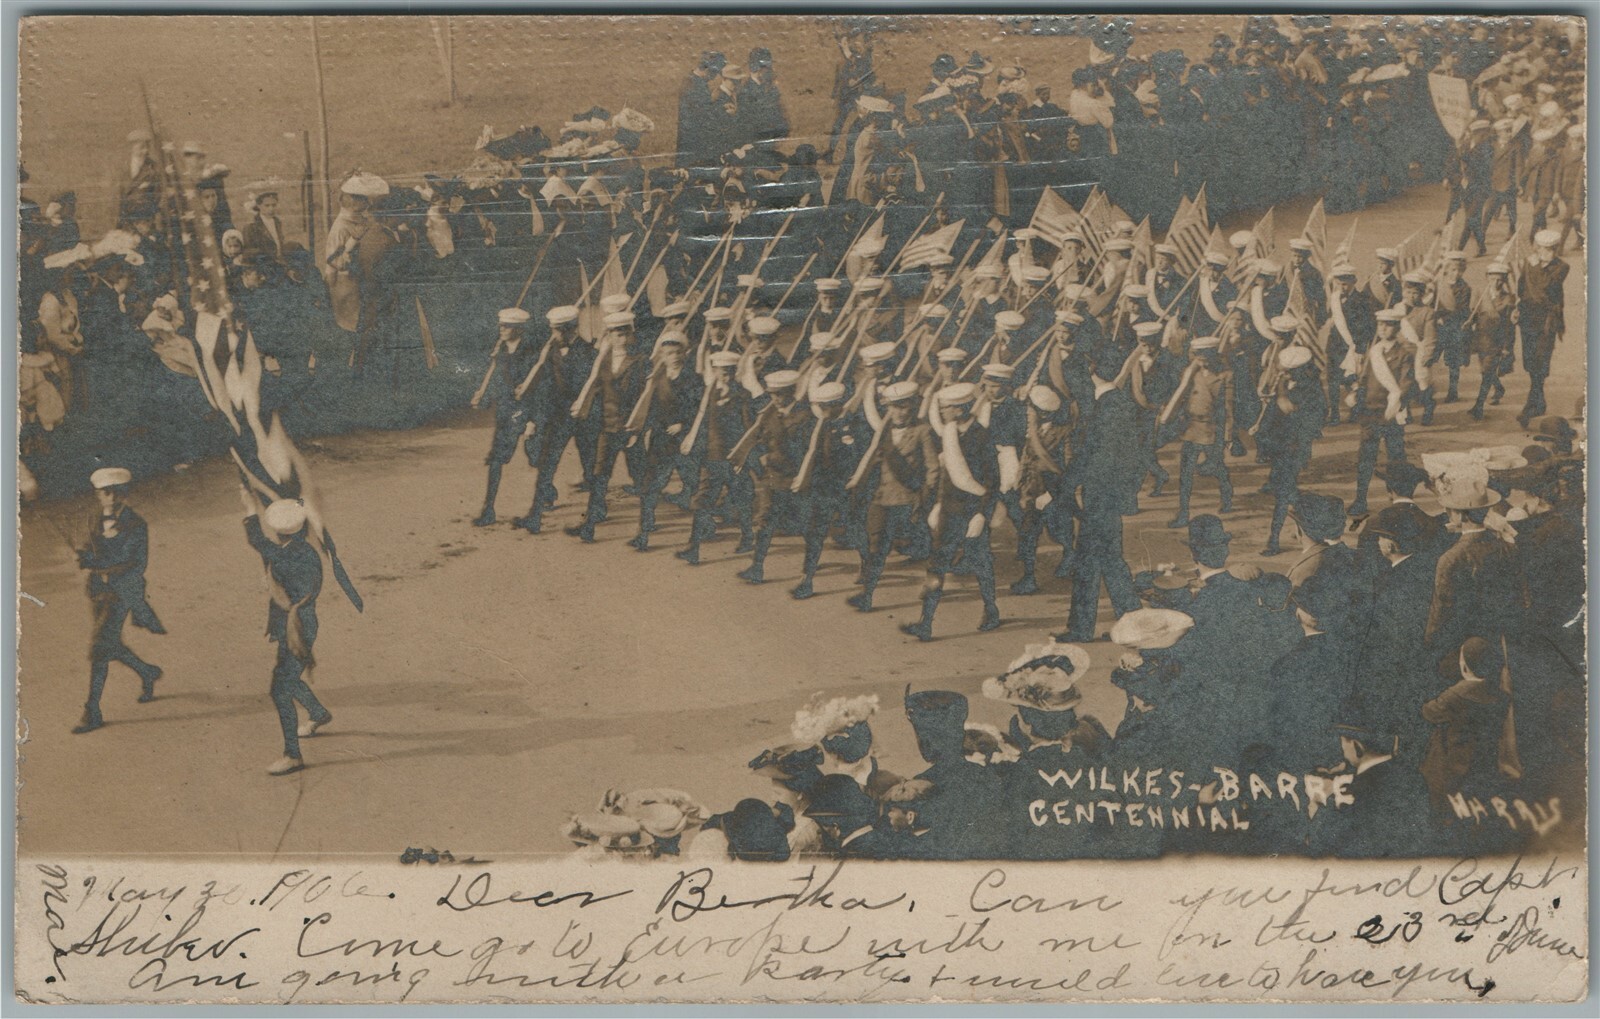 WILKES-BARRE
CENTENNIAL
HARRIS
May 30. 1906. Dear Bertha. Can you find Capt.
Come go to Europe with me on the 23rd of June
Am going with a party + would like to have you,
Mae.